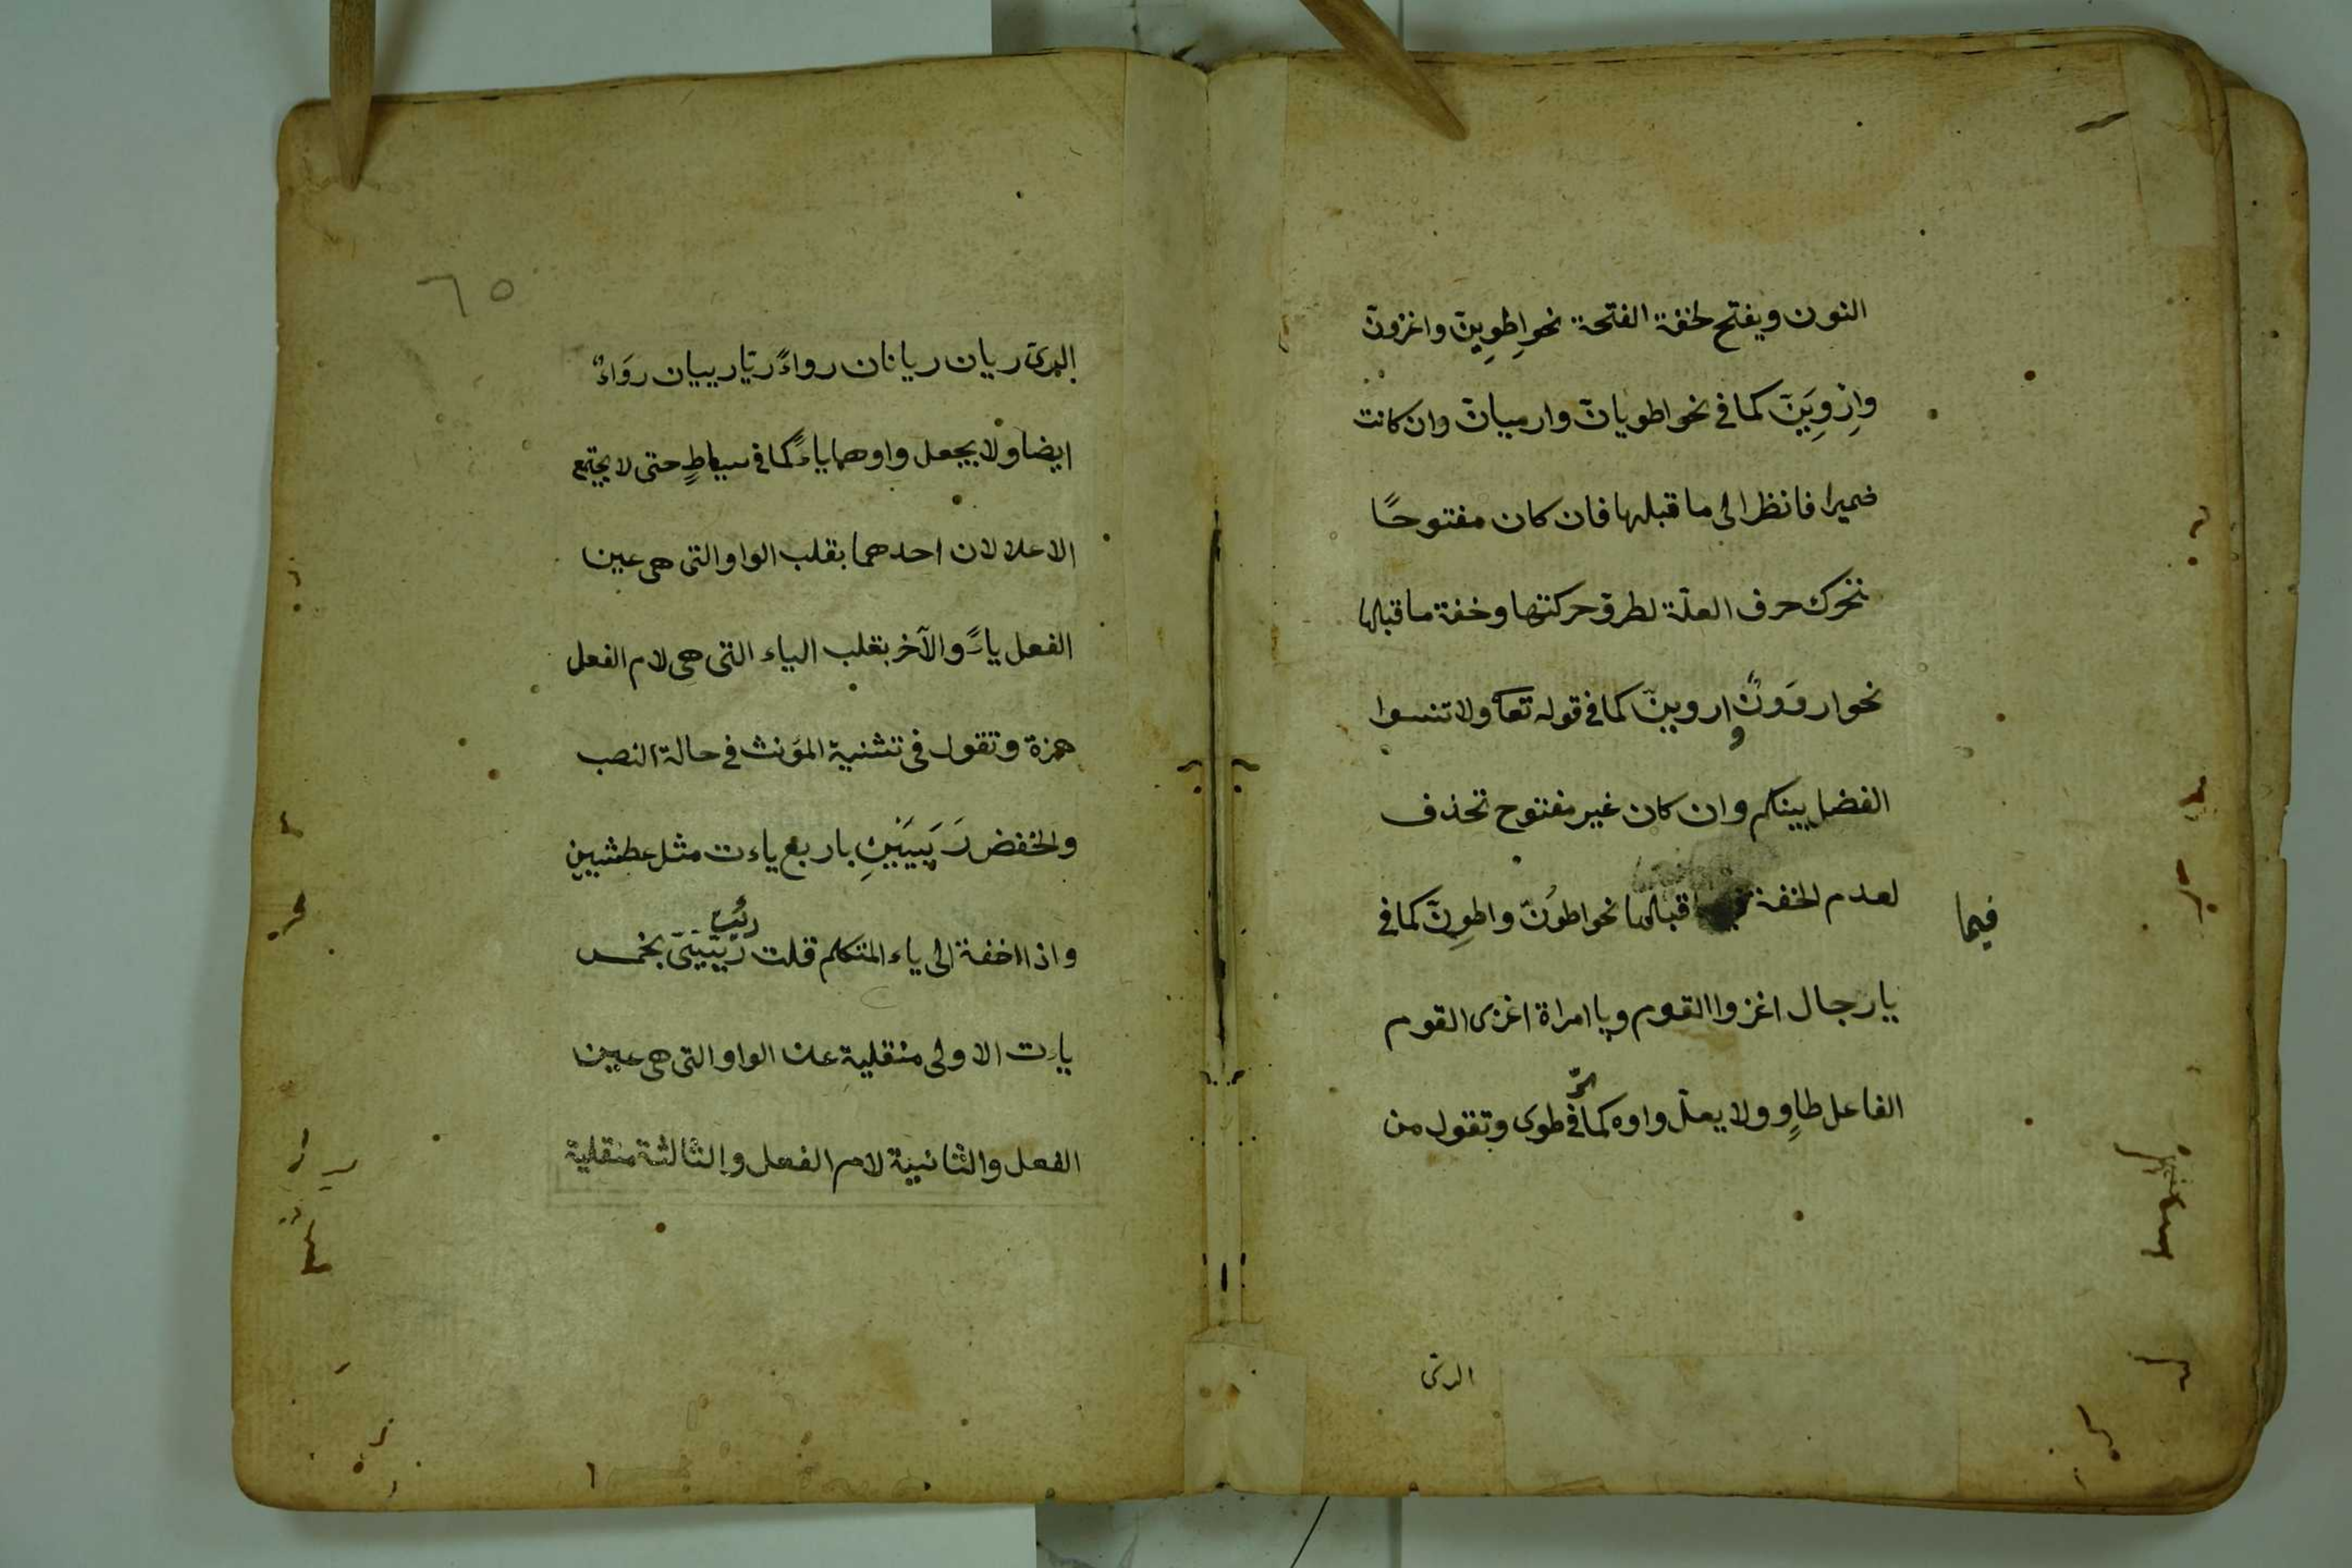 النون ويفتح لخفة الفتحة نحو اِطوِينّ واغزونّ
وازوِيَنّ كما في نحو اطويانّ وارميانّ وان كانت
ضميرا فانظر الى ما قبلها فان كان مفتوحًا
تحرك حرف العلّة لطرو حركتها وخفة ما قبلها
نحو ارووُنّ و اروينّ كما في قوله تعا ولا تنسوا
الفضل بينكم وان كان غير مفتوح تحذف
لعدم الخفة قبلها نحو اطوُنّ واطوِنّ كما في
فيما
يا رجال اغزوا القوم ويا امراة اغزى القوم
الفاعل طاوٍ ولا يعلّ واوه كما في طوى وتقول من
الرى
٦٥
الرىّ ريان ريانان رواءً ريّا رييان روَاءٌ
ايضا ولا يجعل واوهما ياءً كما في سياطٍ حتى لا يجتمع
الاعلالان احدهما بقلب الواو التى هى عين
الفعل ياءً والآخر بقلب الياء التى هى لام الفعل
همزة وتقول فى تثنية المؤنث فى حالة النصب
والخفض رَيَّيَيْنِ باربع ياءت مثل عطشيين
واذا اخفة الى ياء المتكلم قلت ريّيَيَّ بخمس
ياءت الاولى منقلبة عن الواو التى هى عين
الفعل والثانية لام الفعل والثالثة منقلبة